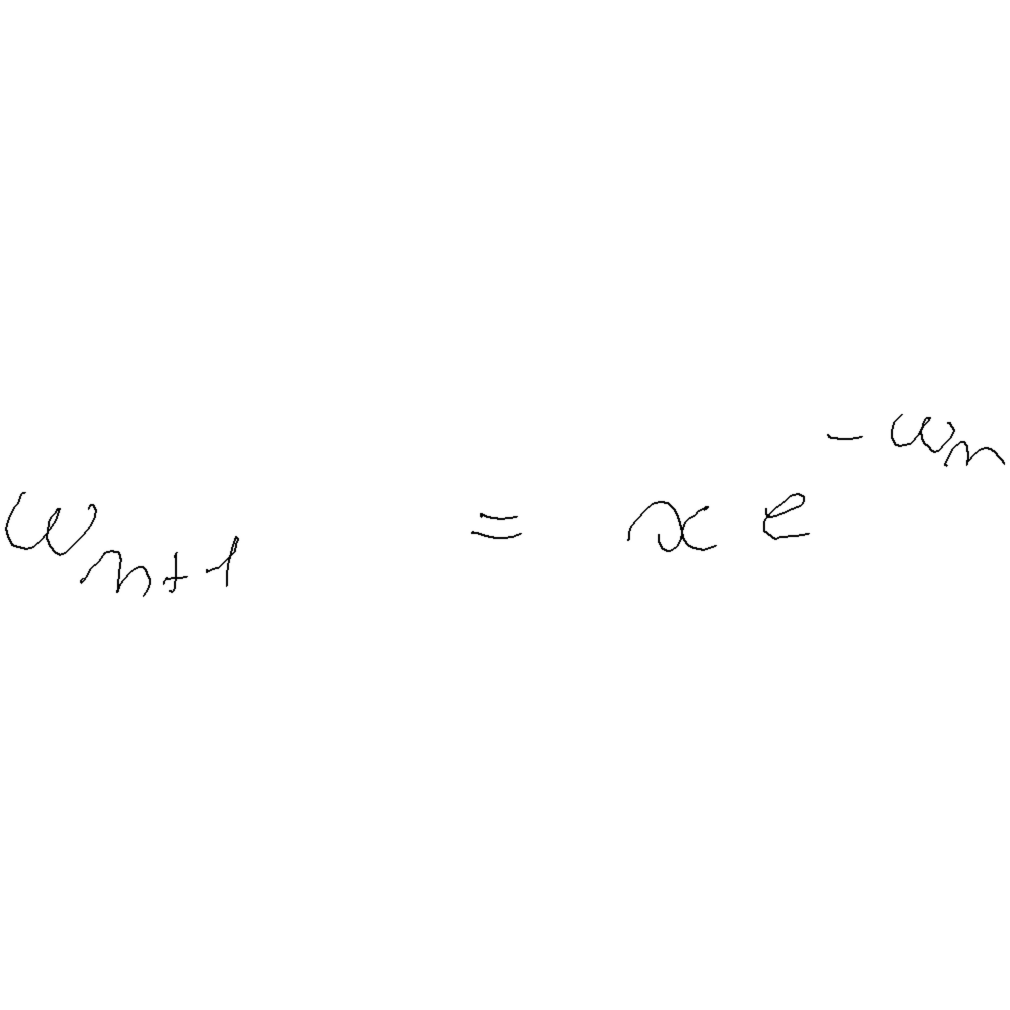 w_{n+1} = x e^{-w_n}